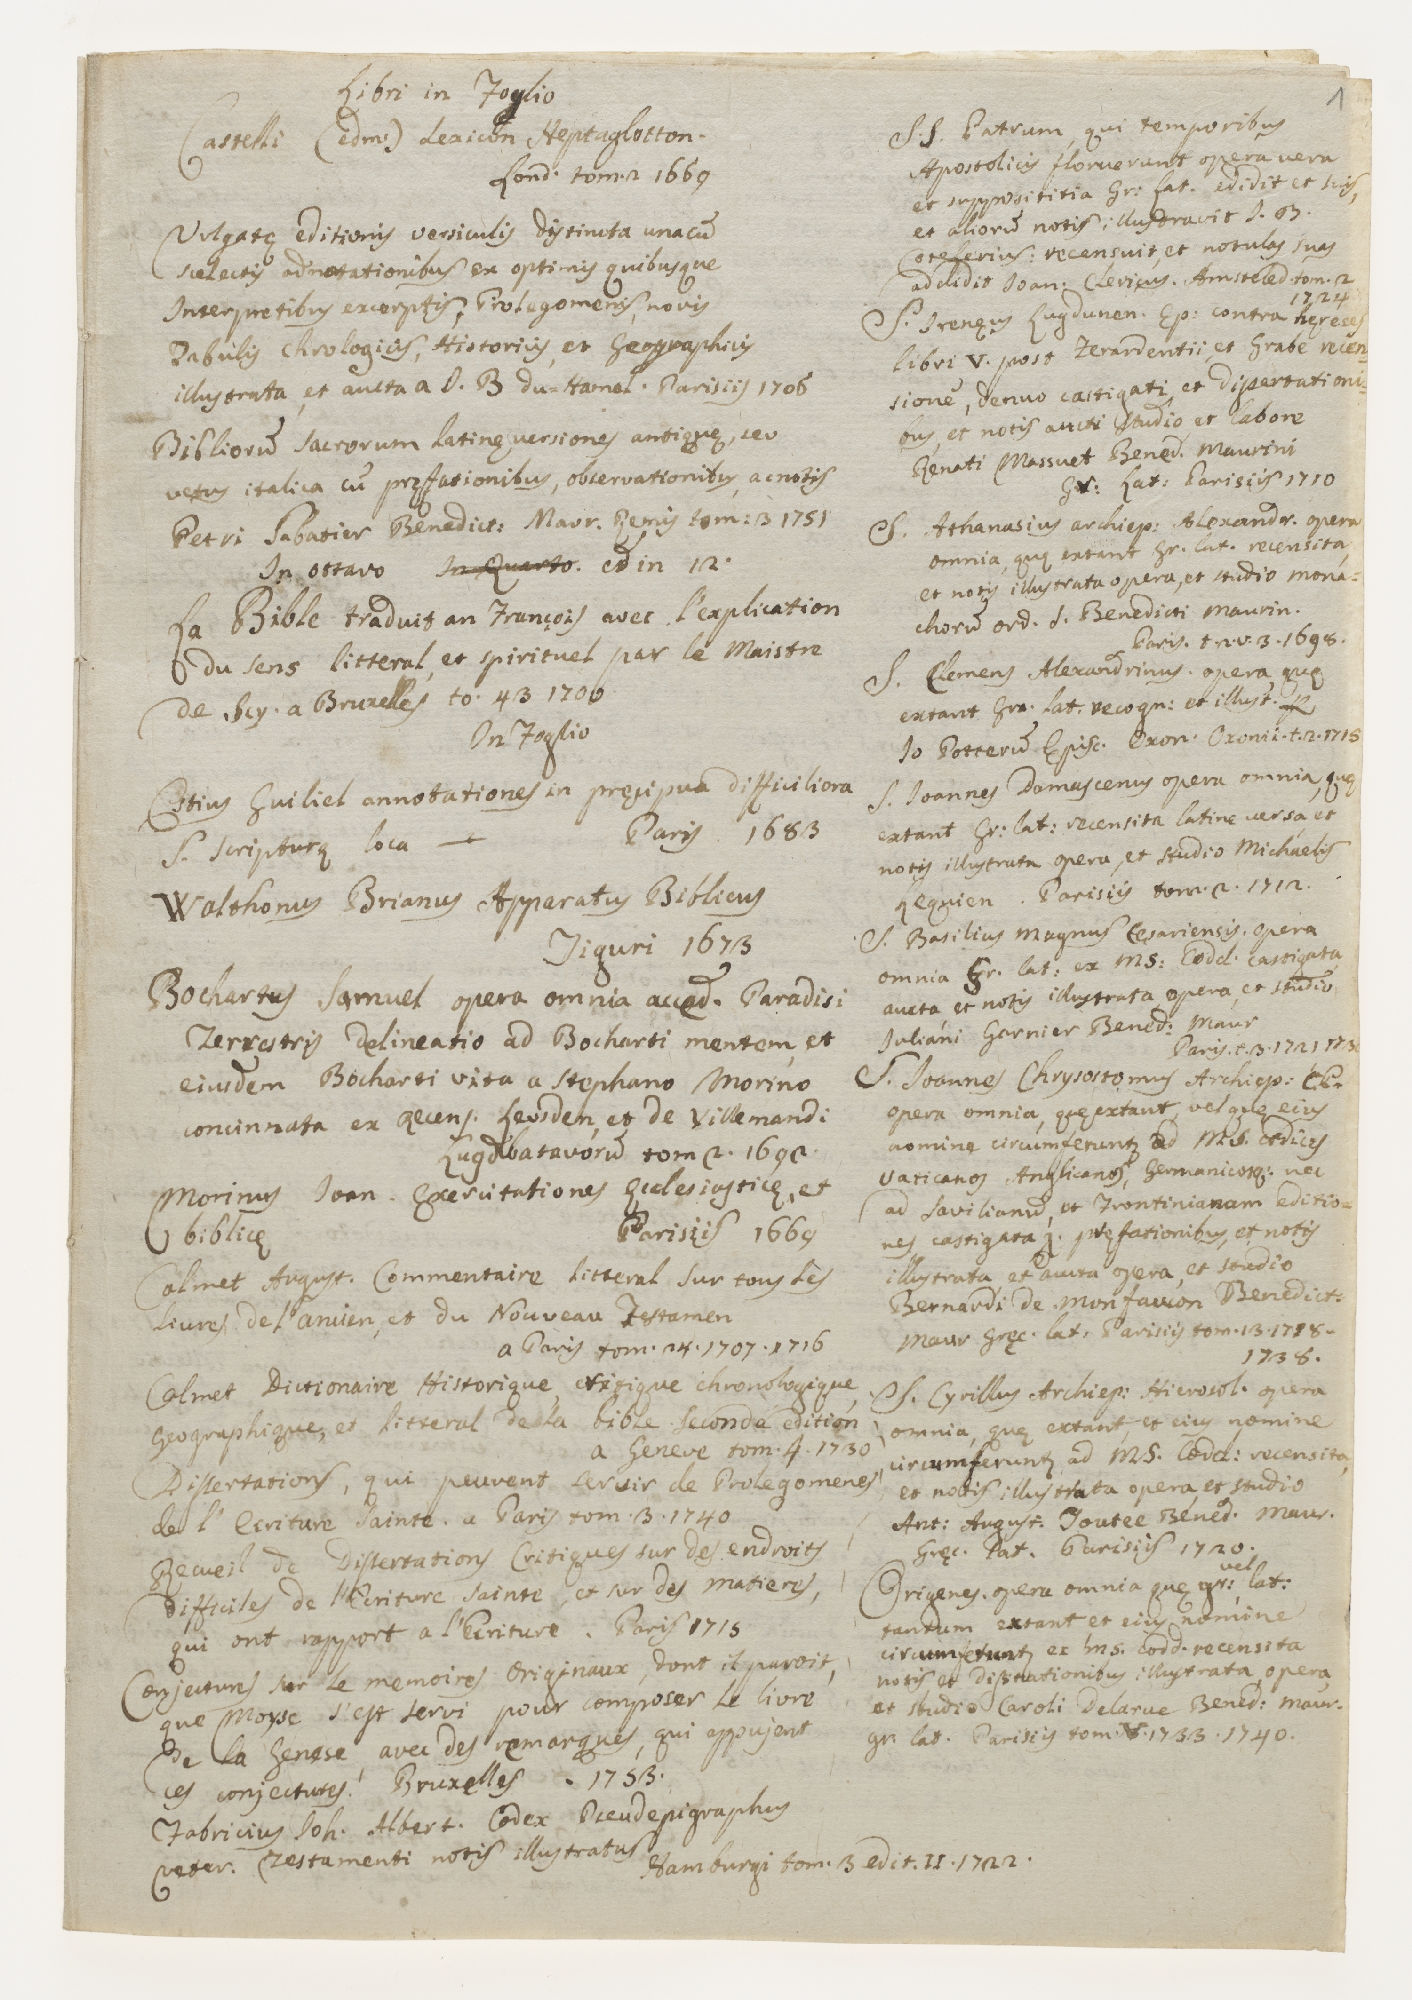 Libri in Foglio
Castelli (edm:) Lexicon Heptaglotton.
Lond. tom. 2 1669
Vulgatę editionis versiculis distincta unacū
selectis adnotationibus ex optimis quibusque
Interpretibus excerptis, Prolegomenis, novis
Tabulis Chrologicis, Historicis, et Geographicis
illustrata, et aucta a I. B du-Hamel. Parisiis 1706
Bibliorū sacrorum Latinę versiones antiquę, seu
vetus italica cū pręfationibus, observationibus, ac notis
Petri Sabatier Benedict: Maur. Remis tom: 3 1751
In ottavo In Quarto. ed in 12.
La Bible traduit an François avec l'explication
du sens litteral, et spirituel par le Maistre
de Scy. a Bruxelles to. 43 1700
In Foglio
Estius Guiliel annotationes in pręcipua difficiliora
S. Scripturę loca — Paris 1683
Walthonus Brianus Apparatus Biblicus
Tiguri 1673
Bochartus Samuel opera omnia acced. Paradisi
Terrestris delineatio ad Bocharti mentem, et
eiusdem Bocharti vita a Stephano Morino
concinnata ex recens. Leusden, et de Villemandi
Lugd batavorū tom 2. 1692.
Morinus Ioan. Exercitationes Ecclesiasticę, et
biblicę Parisiis 1669
Calmet August. Commentaire litteral sur tous les
livres de l'ancien, et du Nouveau Testamen
a Paris tom. 24. 1707. 1716
Calmet Dictionaire Historique, critique chronologique,
Geographique, et litteral de la bible seconde edition
a Geneve tom. 4. 1730
Dissertations, qui peuvent servir de Prolegomenes
de l'Ecriture Sainte. a Paris tom. 3. 1740
Recueil de Dissertations Critiques sur des endroits
difficiles de l'Ecriture Sainte, et sur des matieres,
qui ont rapport a l'Ecriture. Paris 1715
Conjectures sur le memoires originaux, dont il paroit,
que Moyse s'est servi pour composer le livre
de la Genese, avec des remarques, qui appujent
ces conjectures. Bruxelles. 1753.
Fabricius Ioh. Albert. Codex Pseudepigraphus
veter. Testamenti notis illustratus
Hamburgi tom. 3 edit. II. 1722.
1
S.S. Patrum, qui temporibus
Apostolicis floruerunt opera vera
et supposititia Gr: Lat. edidit et suis,
et aliorū notis illustravit I. B.
Coteferius: recensuit, et notulas suas
addidit Ioan: Clericus. Amsteled tom. 2
1724
S. Irenęus Lugdunen. Ep: contra hęreses
libri V. post Ferardentii, et Grabe recen-
sionē, denuo castigati, et dissertationi-
bus, et notis aucti studio et labore
Renati Massuet Bened. Maurini
Gr: Lat: Parisiis 1710
S. Athanasius archiep: Alexandr. opera
omnia, quę extant Gr. lat. recensita,
et notis illustrata opera, et studio mona-
chorū ord. S. Benedicti Maurin.
Paris. t. n. v. 3. 1698.
S. Clemens Alexandrinus. opera, quę
extant Gr. lat. recogn: et illust. p
Io Potterū Episc. Oxon. Oxonii. t. 2. 1715
S. Ioannes Damascenus opera omnia, quę
extant Gr: lat: recensita latine versa, et
notis illustrata opera, et studio Michaelis
Lequien. Parisiis tom. 2. 1712.
S. Basilius Magnus Cesariensis. opera
omnia Gr. lat: ex MS: Codd. castigata,
aucta, et notis illustrata, opera, et studio
Iuliani Garnier Bened: Maur
Paris. t. 3. 1721 1730
S. Ioannes Chrysostomus Archiep: CP.
opera omnia, quę extant, vel quę eius
nomine circumferuntʒ ad M.S. codices
Vaticanos Anglicanos, Germanicosq: nec
ad Savilianū, et Frontinianam editio-
nes castigata. pręfationibus, et notis
illustrata et aucta opera, et studio
Bernardi de Monfaucon Benedict:
Maur Gręc. lat. Parisiis tom. 13. 1718.
1738.
S. Cyrillus Archiep: Hierosol. opera
omnia, quę extant, et eius nomine
circumferuntʒ ad M.S. Codd: recensita,
et notis illustrata opera, et studio
Ant: August. Toutee Bened. Maur.
Gręc. Lat. Parisiis 1720.
vel
Origenes. opera omnia que gr: lat:
tantum extant et eius nomine
circumferuntʒ ex ms. codd. recensita
notis et dissertationibus illustrata, opera,
et studio Caroli Delarue Bened: Maur.
gr. lat. Parisiis tom. 1733. 1740.